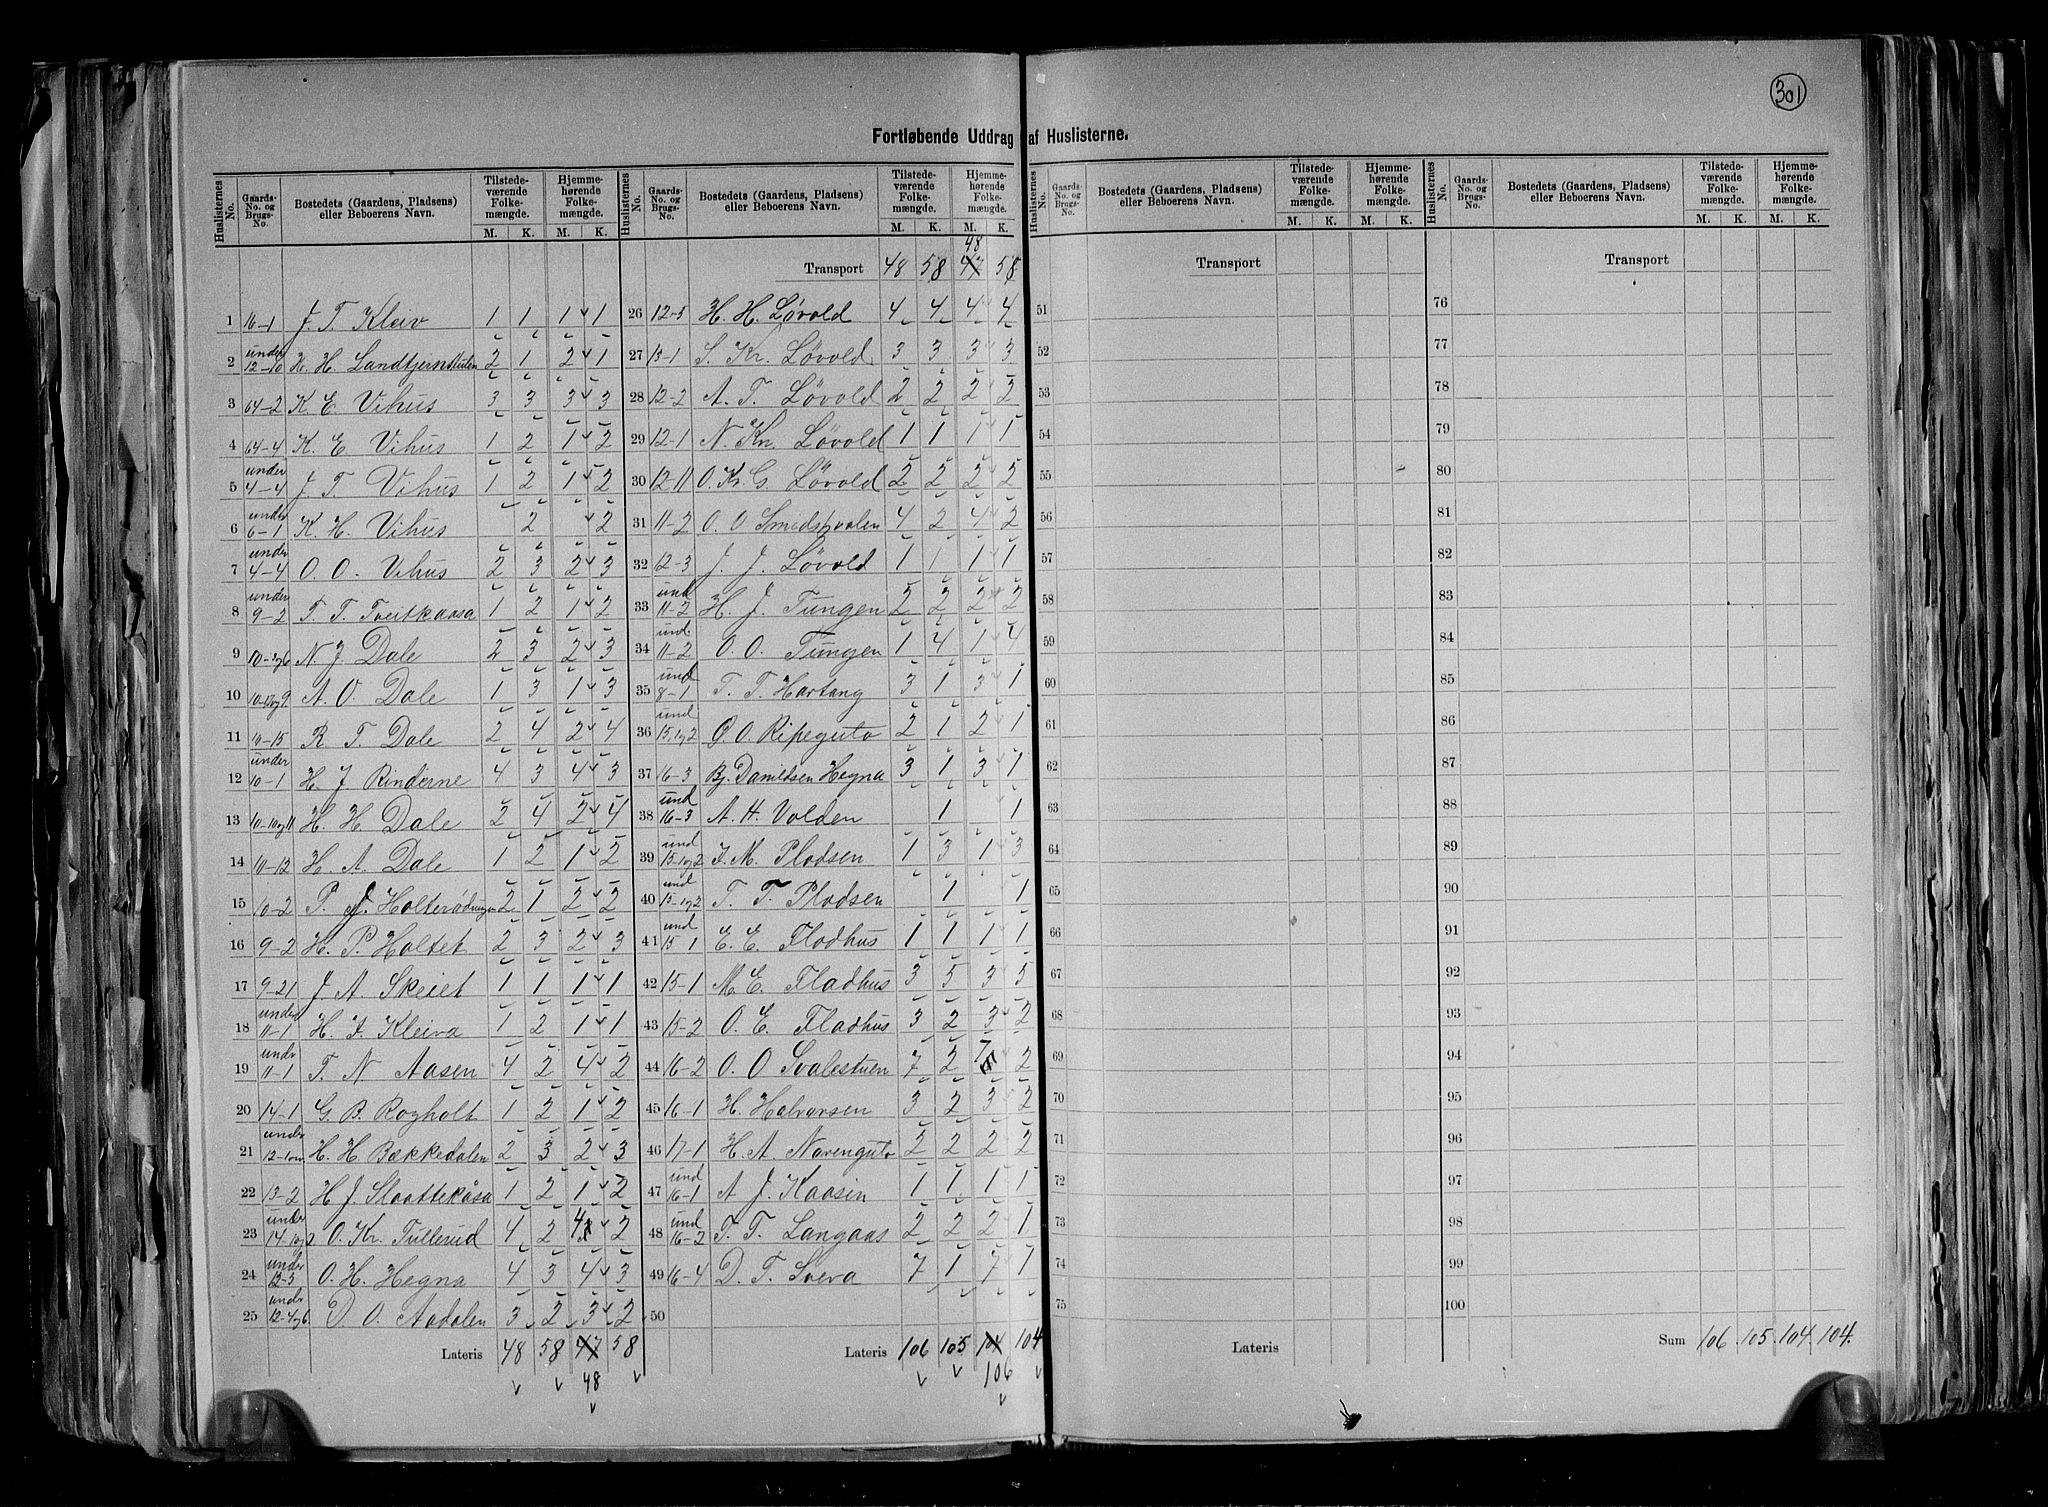 301
Fortløbende Uddrag af Huslisterne.
Huslisternes No. Gaards-No. og Brugs-No. Bostedets (Gaardens, Pladsens) eller Beboerens Navn. Tilstedeværende Folkemængde. M. K. Hjemmehørende Folkemængde. M. K.
1 16-1 J. T. Kleiv 1 1 1 1
2 under 12-10 K. H. Landtjernstulen 2 1 2 1
3 64-2 K. E. Vihus 3 3 3 3
4 64-4 K. E. Vihus 1 2 1 2
5 under 4-4 J. T. Vihus 1 2 1 2
6 under 6-1 K. H. Vihus 2 2
7 under 4-4 O. O. Vihus 2 3 2 3
8 under 9-2 T. T. Tveitkaasa 1 2 1 2
9 N. J. Dale 2 3 2 3
10 A. O. Dale 1 3 1 3
11 10-15 R. T. Dale 2 4 2 4
12 under 10-1 H. J. Rinderne 4 3 4 3
13 10-10og11 H. H. Dale 2 4 2 4
14 10-12 H. A. Dale 1 2 1 2
15 10-2 P. J. Holterødningen 2 1 2 2
16 9-2 H. P. Holtet 2 3 2 3
17 9-21 J. A. Skeiet 1 1 1 1
18 under 11-1 H. J. Kleiva 1 2 1 1
19 undr 11-1 T. N. Aasen 4 2 4 2
20 14-1 G. B. Rogholt 1 2 1 2
21 under H. H. Bækkedalen 2 3 2 3
22 13-2 H. J. Slaattekåsa 1 2 1 2
23 under 14-1og2 O. Kr. Tullerud 4 2 4 2
24 under 12-3 O. H. Hegna 4 3 4 3
25 undr 12-4og6 D. O. Aadalen 3 2 3 2
Lateris 48 58 47 58
48
Huslisternes No. Gaards-No. og Brugs-No. Bostedets (Gaardens, Pladsens) eller Beboerens Navn. Tilstedeværende Folkemængde. M. K. Hjemmehørende Folkemængde. M. K.
48
Transport 48 58 47 58
26 12-5 H. H. Løvold 4 4 4 4
27 13-1 S. Kr. Løvold 3 3 3 3
28 12-2 A. T. Løvold 2 2 2 2
29 12-1 N. Kn. Løvold 1 1 1 1
30 12-11 O. Kr. G. Løvold 2 2 2 2
31 11-2 O. O. Smedshvalen 4 2 4 2
32 12-3 J. J. Løvold 1 1 1 1
33 und 11-2 H. J. Tungen 2 2 2 2
34 und. 11-2 O. O. Tungen 1 4 1 4
35 und 8-1 T. T. Hartang 3 1 3 1
36 und 15,1og2 O. O. Ripeguto 2 1 2 1
37 16-3 Bj. Danielsen Hegna 3 1 3 1
38 und 16-3 A. H. Volden 1 1
39 und 15-1og2 J. M. Pladsen 1 3 1 3
40 und 15-1og2 T. T. Pladsen 1 1
41 und 15-1 E. E. Fladhus 1 1 1 1
42 15-1 M. E. Fladhus 3 5 3 5
43 15-2 O. E. Fladhus 3 2 3 2
44 16-2 O. O. Svalestuen 7 2 7 2
45 16-1 H. Halvorsen 3 2 3 2
46 17-1 H. A. Narenguto 2 2 2 2
47 und 16-1 A. J. Kaasin 1 1 1 1
48 und 16-2 T. T. Langaas 2 2 2 1
49 16-4 D. T. Sveva 7 1 7 1
50
Lateris 106 105 104 104
106
Huslisternes No. Gaards-No. og Brugs-No. Bostedets (Gaardens, Pladsens) eller Beboerens Navn. Tilstedeværende Folkemængde. M. K. Hjemmehørende Folkemængde. M. K.
Transport
51
52
53
54
55
56
57
58
59
60
61
62
63
64
65
66
67
68
69
70
71
72
73
74
75
Lateris
Huslisternes No. Gaards-No. og Brugs-No. Bostedets (Gaardens, Pladsens) eller Beboerens Navn. Tilstedeværende Folkemængde. M. K. Hjemmehørende Folkemængde. M. K.
Transport
76
77
78
79
80
81
82
83
84
85
86
87
88
89
90
91
92
93
94
95
96
97
98
99
100
Sum 106. 105. 104. 104.